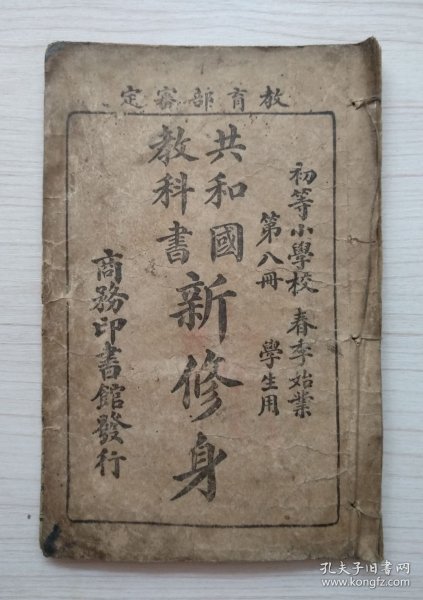 教育部審定
初等小學校 春季始業
第八冊 學生用
共和國
教科書
新修身
商務印書館發行
孔夫子旧书网
www.kongfz.com